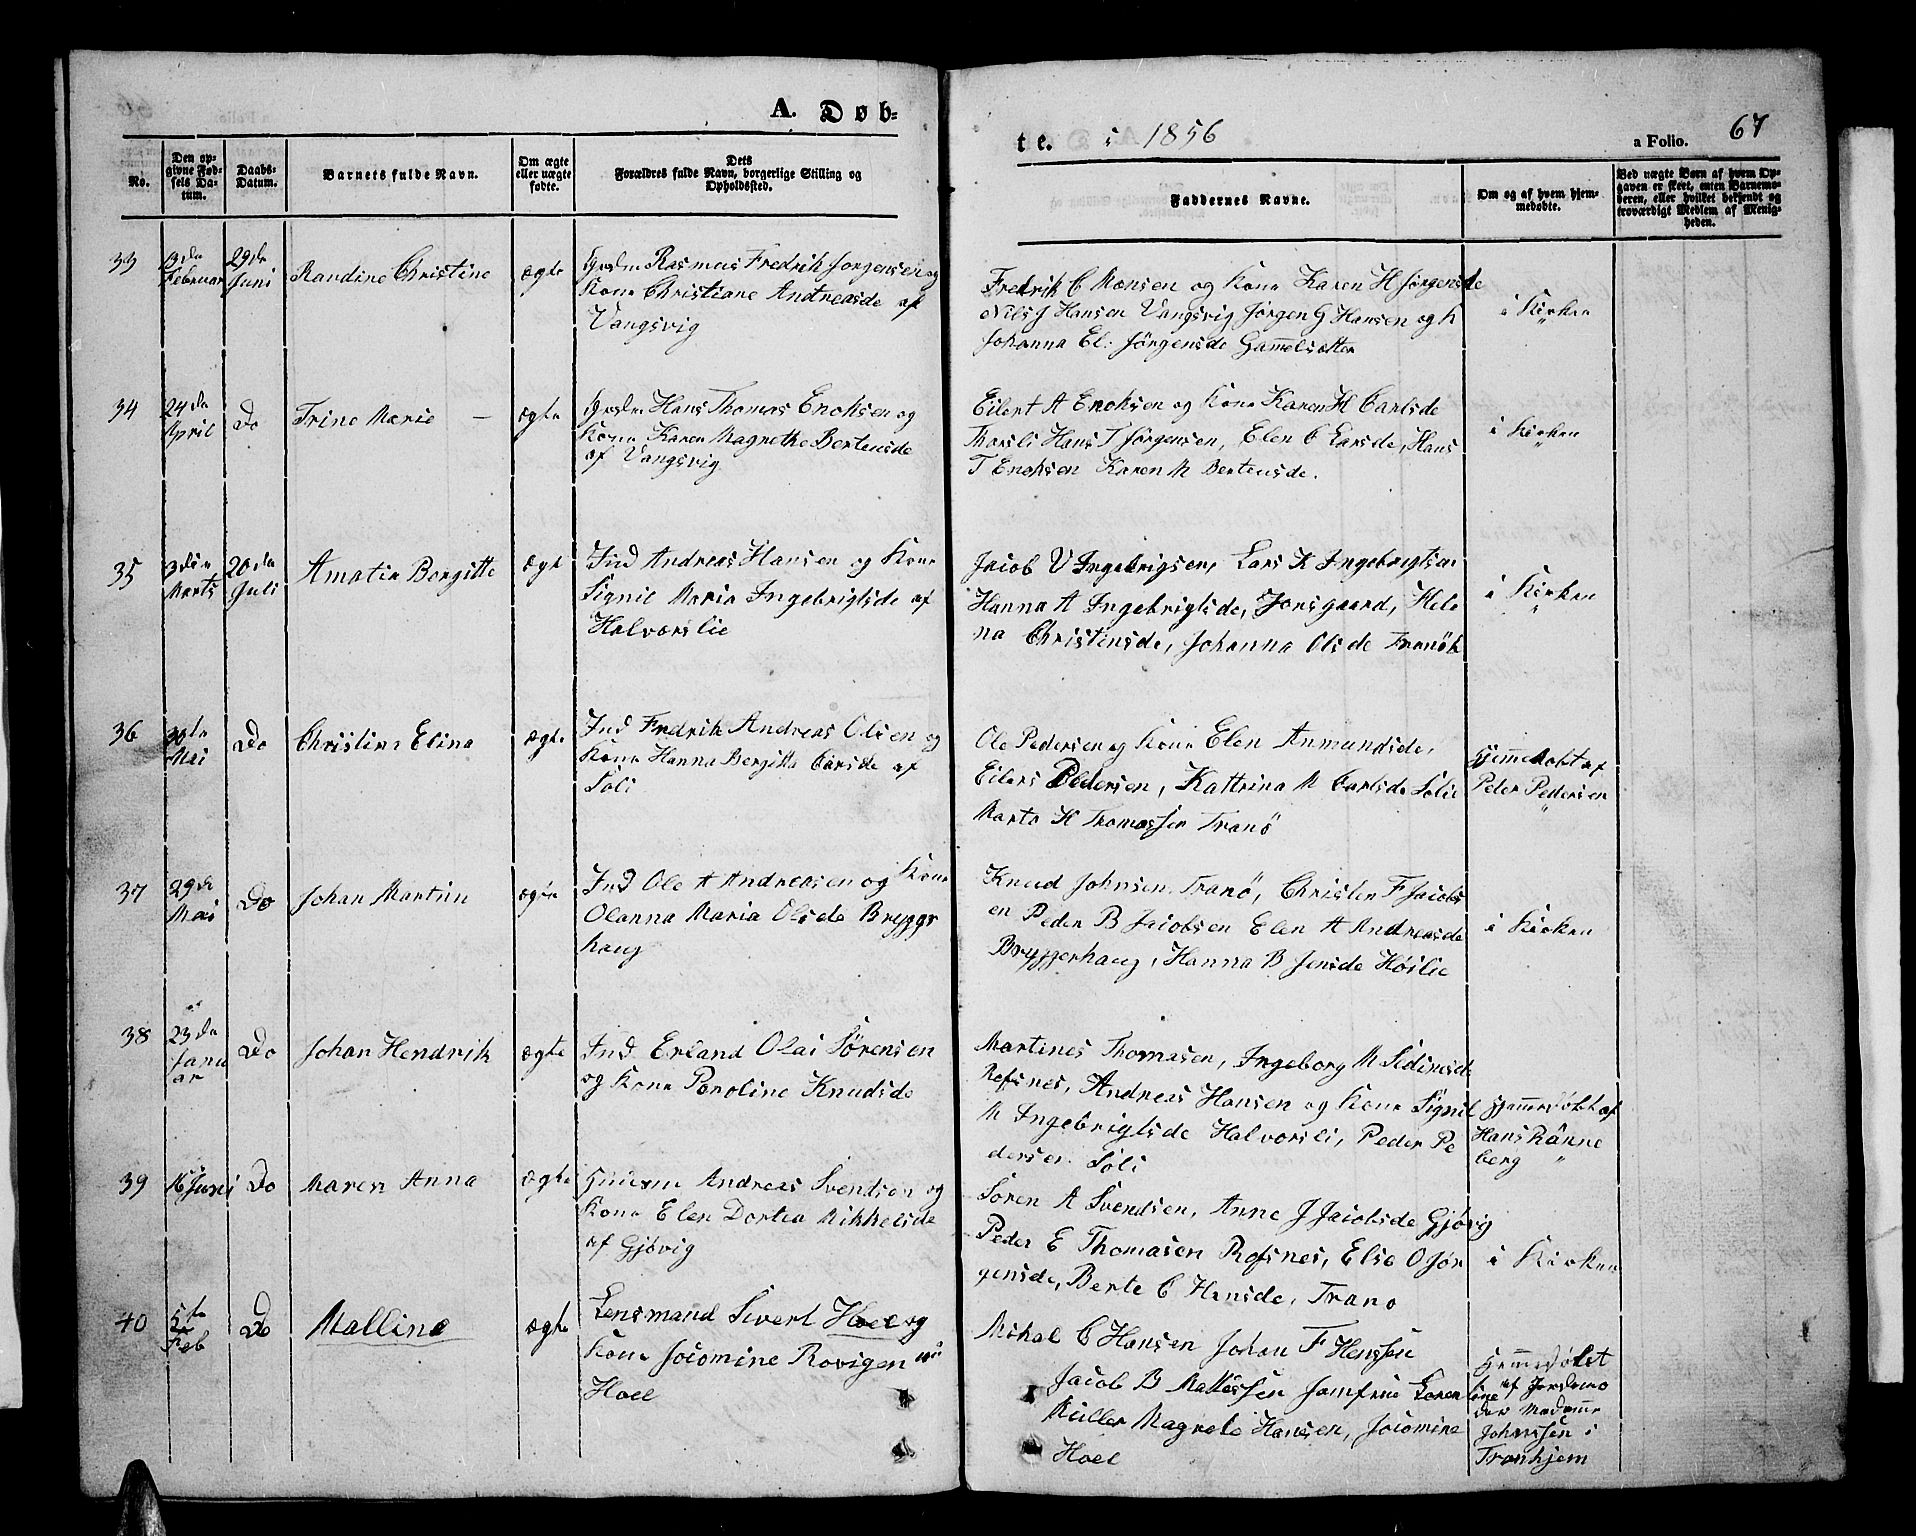 A. Døb-
te. i 1856
a Folio. 67
No.
Den op-
givne Fød-
sels Da-
tum.
Daabs-
Datum.
Barnets fulde Navn.
Om ægte
eller uægte
fødte.
Dets
Forældres fulde Navn, borgerlige Stilling og
Opholdssted.
Faddernes Navne.
Om og af hvem hjem-
medøbte.
Ved uægte Børn af hvem Op-
gaven er skeet, enten Barnemo-
deren, eller hvilket bekjendt og
troværdigt Medlem af Menig-
heden.
33
Februar
29de
Juni
Randine Christine
ægte
Rasmus Fredrik Jørgensen og
Kone Christiane Andreasde af
Vangsvig
Fredrik C Monsen og Kone Karen H Jørgensde
Nils J Hansen Vangsvig Jørgen G Hansen og K
Johanna El. Jørgensde Gammelsætter
i Kirken
34
24de
April
Do
Trine Marie
ægte
Hans Thomas Enoksen og
Kone Karen Magrethe Bertensde
af Vangsvig
Eilert A Enoksen og Kone Karen H Carlsde
Thorsli Hans T Jørgensen, Elen C Larsde, Hans
T Enoksen Karen M Bertensde.
i Kirken
35
3die
Marts
20de
Juli
Amatia Borgitte
ægt
Ind Andreas Hansen og Kone
Signil Maria Ingebrigtsde af
Halvorslie
Jacob V Ingebrigsen, Lars K Ingebrigtsen
Hanna A Ingebrigtsde, Jonsgaard, Hele
na Christensde, Johanna Olsde Tranök
i Kirken
36
30te
Mai
Do
Christine Elina
ægte
Ind Fredrik Andreas Olsen og
Kone Hanna Bergitta Carsde af
Soli
Ole Pedersen og Kone Elen Anmundsde,
Eilers Pedersen, Kattrina M Carlsde Solie
Marta H Thomassen Tranö
Hjemmedøbt af
Peder Pedersen
37
29de
Mai
Do
Johan Martin
ægte
Ind Ole A Andreasen og Kone
Olanna Maria Olsde Bryggr
haug
Knud Johnsen Tranö, Christen F Jacobs
en Peder B Jacobsen Elen A Andreasde
Bryggerhaug, Hanna B Jensde Höilie
i Kirken
38
23de
Janu
ar
Do
Johan Hendrik
ægte
Ind Erland Olai Sörensen
og Kone Peroline Knudsde
Martines Thomasen, Ingeborg M
Refsnes, Andreas Hansen og Kone Signil
M Ingebrigtsde Halvorsli, Peder Pe
dersen Soli
Hjemmedøbt af
Hans Rånne
berg
39
16 Juni
Do
Maren Anna
ægte
Andreas Svendsen og
Kone Elen Dortea Mikkelsde
af Gjövig
Sören A Svendsen, Anne J Jacobsde Gjövig
Peder E Thomasen Refsnes, Else O Jör
gensde, Berte C Hansde, Trano
i Kirken
40
5te
Feb
Do
Malline
ægte
Lensmand Sivert Hoel og
Kone Jocomine Rovigen
Hoel
Mikal C Hansen Johan F Henssen
Jacob B Jomfrue Loren
Müller Magrete Hansen, Jocomine
Hoel
Hjemmedøbt
af Jordemo
der Madame
Johnssen i
Tronhjem